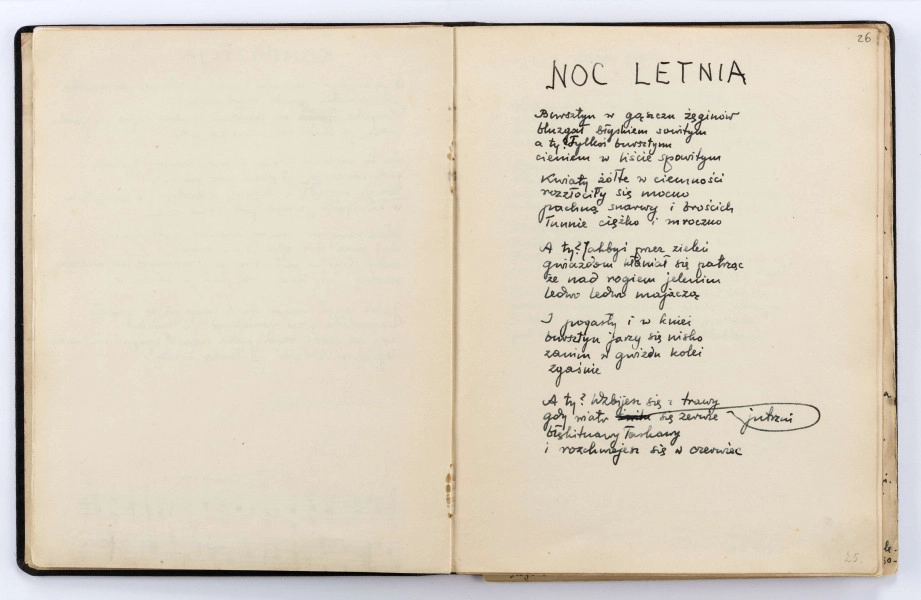 26
NOC LETNIA
Bursztyn w gąszczu żęginów
bluzgał błyskiem sowitym
a ty? Tylkoś bursztynu
cieniem w liście spowitym
Kwiaty żółte w ciemności
rozzłociły się mocno
pachną snarwy i brościch
łunnie ciężko i mroczno
A ty? Jakbyś przez zieleń
gwiazdom kłaniał się patrząc
że nad rogiem jelenim
ledwo ledwo majaczą
I pogasły i w kniei
bursztyn jarzy się nisko
zanim w gwiezdn kolei
zgaśnie
A ty? Wzbijesz się z trawy
gdy wiatr się zerwie jutrzni
błękitnawy łaskawy
i rozchwiejesz się w czerwiec
25.